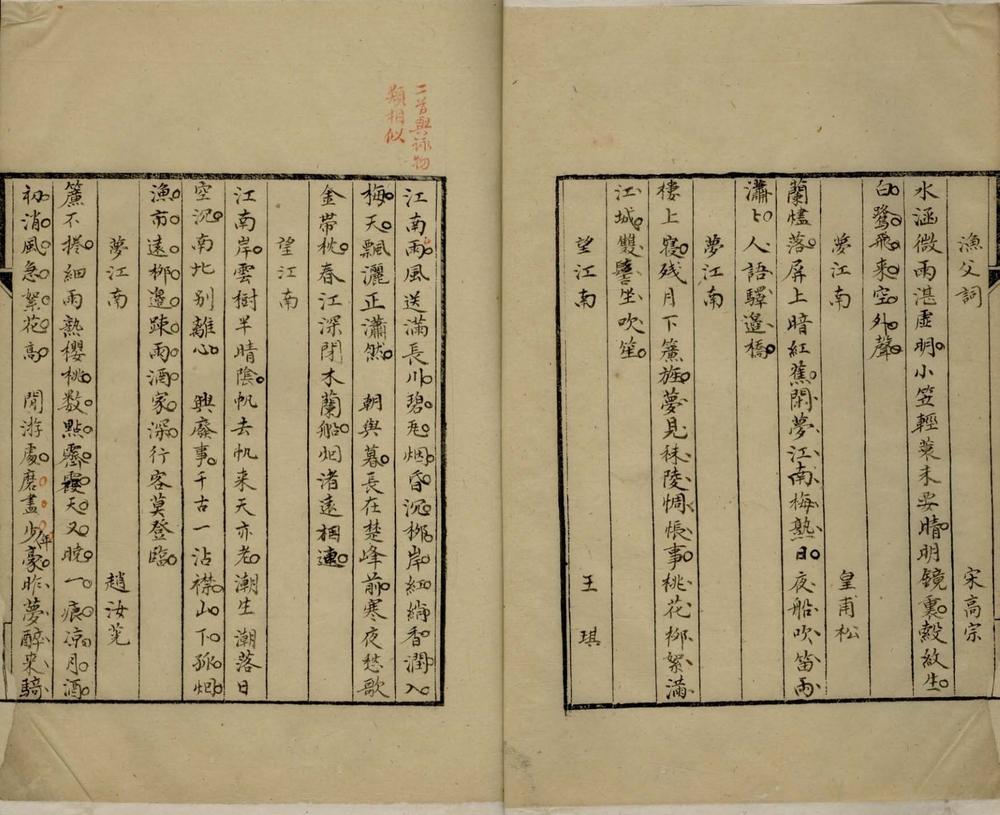 漁父詞 宋高宗
水涵微雨湛虛明小笠輕蓑未要晴明鏡裏縠紋生
白鷺飛来空外聲
夢江南 皇甫松
蘭燼落屏上暗紅蕉閑夢江南梅熟日夜船吹笛雨
瀟〻人語驛邊橋
夢江南
樓上寢残月下簾旌夢見秣陵惆悵事桃花栁絮滿
江城雙髻坐吹笙
望江南 王琪
二首與詠物
類相似
江南雨風送滿長川碧瓦烟昏沉栁岸紅綃香潤入
梅天飄灑正瀟然 朝與暮長在楚峰前寒夜愁歌
金帶枕春江深閉木蘭船烟渚遠相連
望江南
江南岸雲樹半晴陰帆去帆来天亦老潮生潮落日
空沉南北别離心 興廢事千古一沾襟山下孤烟
漁市遠栁邊踈雨酒家深行客莫登臨
夢江南 趙汝茪
簾不捲細雨熟櫻桃数點霽霞天又曉一痕凉月酒
初消風急絮花高 閒游處磨盡少年豪昨夢醉来騎